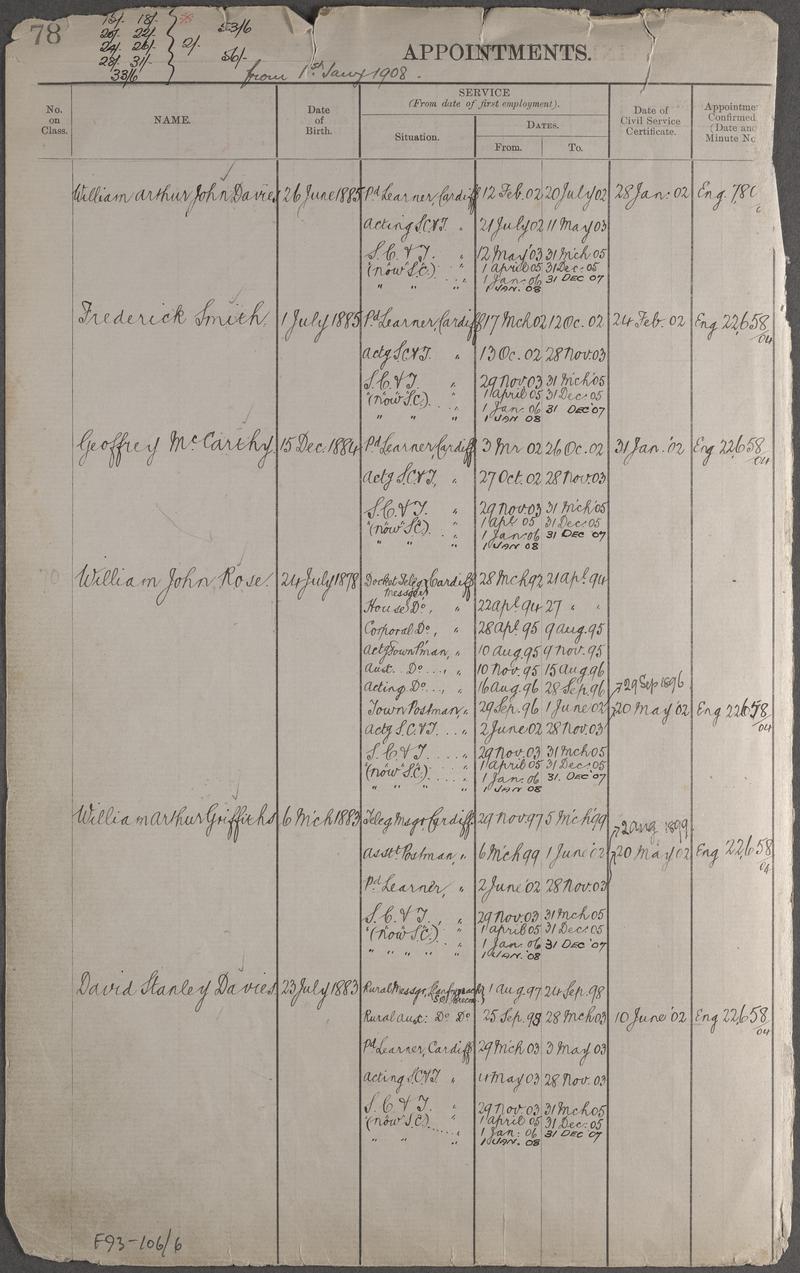 78
15/. 18/.
20/. 22/.
24/. 26/. 2/.
28/. 31/-
33/6
53/6
56/-
from 1st Jany 1908.
APPOINTMENTS.
No. on Class.
NAME.
Date of Birth.
SERVICE
(From date of first employment).
Situation.
DATES.
From. To.
Date of Civil Service Certificate.
Appointme Confirmed (Date and Minute No
William Arthur John Davies 26 June 1885 Pd Learner, Cardiff 12 Feb. 02 20 July 02 28 Jan: 02 Eng. 780
Acting S.C.&T. " 21 July 02 11 May 03
S.C.&T. " 12 May '03 31 Mch 05
(now S.C.) " 1 April 05 31 Dec: 05
" " " 1 Jan: 06 31 DEC 07
1 JAN. 08
Frederick Smith 1 July 1885 Pd Learner, Cardiff 17 Mch 02 12 Oc. 02 24 Feb. 02 Eng 22658/04
Actg S.C.&T. " 13 Oc. 02 28 Nov. 03
S.C.&T. " 29 Nov. 03 31 Mch '05
(now S.C.) " 1 April 05 31 Dec: 05
" " " 1 Jan: 06 31 DEC '07
1 JAN 08
Geoffrey McCarthy 15 Dec. 1884 Pd Learner, Cardiff 3 Mr 02 26 Oc. 02 31 Jan. '02 Eng 22658/04
Actg S.C.&T. " 27 Oct. 02 28 Nov. 03
S.C.&T. " 29 Nov. 03 31 Mch '05
(now S.C.) " 1 Apl 05 31 Dec: 05
" " " 1 Jan: 06 31 DEC '07
1 JAN 08
William John Rose. 24 July 1878 Docket Teleg. Messgr, Cardiff 28 Mch 92 21 Apl. 94
House Do, " 22 Apl 94 27 " "
Corporal Do, " 28 Apl. 95 9 Aug. 95
Actg Town P'man, " 10 Aug. 95 9 Nov. 95
Aux. Do ..., " 10 Nov. 95 15 Aug 96
Acting Do ..., " 16 Aug. 96 28 Sep. 96 29 Sep 1896
Town Postman, " 29 Sep. 96 1 June 02 20 May '02 Eng 22658/04
Actg S.C.&T. .. " 2 June 02 28 Nov. 03
S.C.&T. .... " 29 Nov. 03 31 Mch 05
(now S.C.) .... " 1 April 05 31 Dec: 05
" " " " 1 Jan: 06 31. DEC '07
1 JAN 08
William Arthur Griffiths 6 Mch 1883 Teleg Msgr, Cardiff 29 Nov 97 5 Mch '99 2 Aug 1899
Asstt Postman, " 6 Mch 99 1 June '02 20 May 02 Eng 22658/04
Pd Learner, " 2 June '02 28 Nov. 03
S.C.&T., " 29 Nov. 03 31 Mch 05
(now S.C.) " 1 April 05 31 Dec: 05
" " " " " 1 Jan: 06 31 DEC '07
1 JAN. '08
David Stanley Davies 23 July 1883 Rural Messgr, 1 Aug 97 24 Sep. 98
Rural Aux: Do Do 25 Sep. 98 28 Mch 03 10 June '02 Eng 22658/04
Pd Learner, Cardiff 29 Mch 03 3 May 03
Acting S.C.&T. " 4 May 03 28 Nov. 03
S.C.&T. " 29 Nov. 03 31 Mch 05
(now S.C.) .... " 1 April 05 31 Dec: 05
" " " 1 Jan: 06 31 DEC '07
1 JAN. 08
E93-106/6